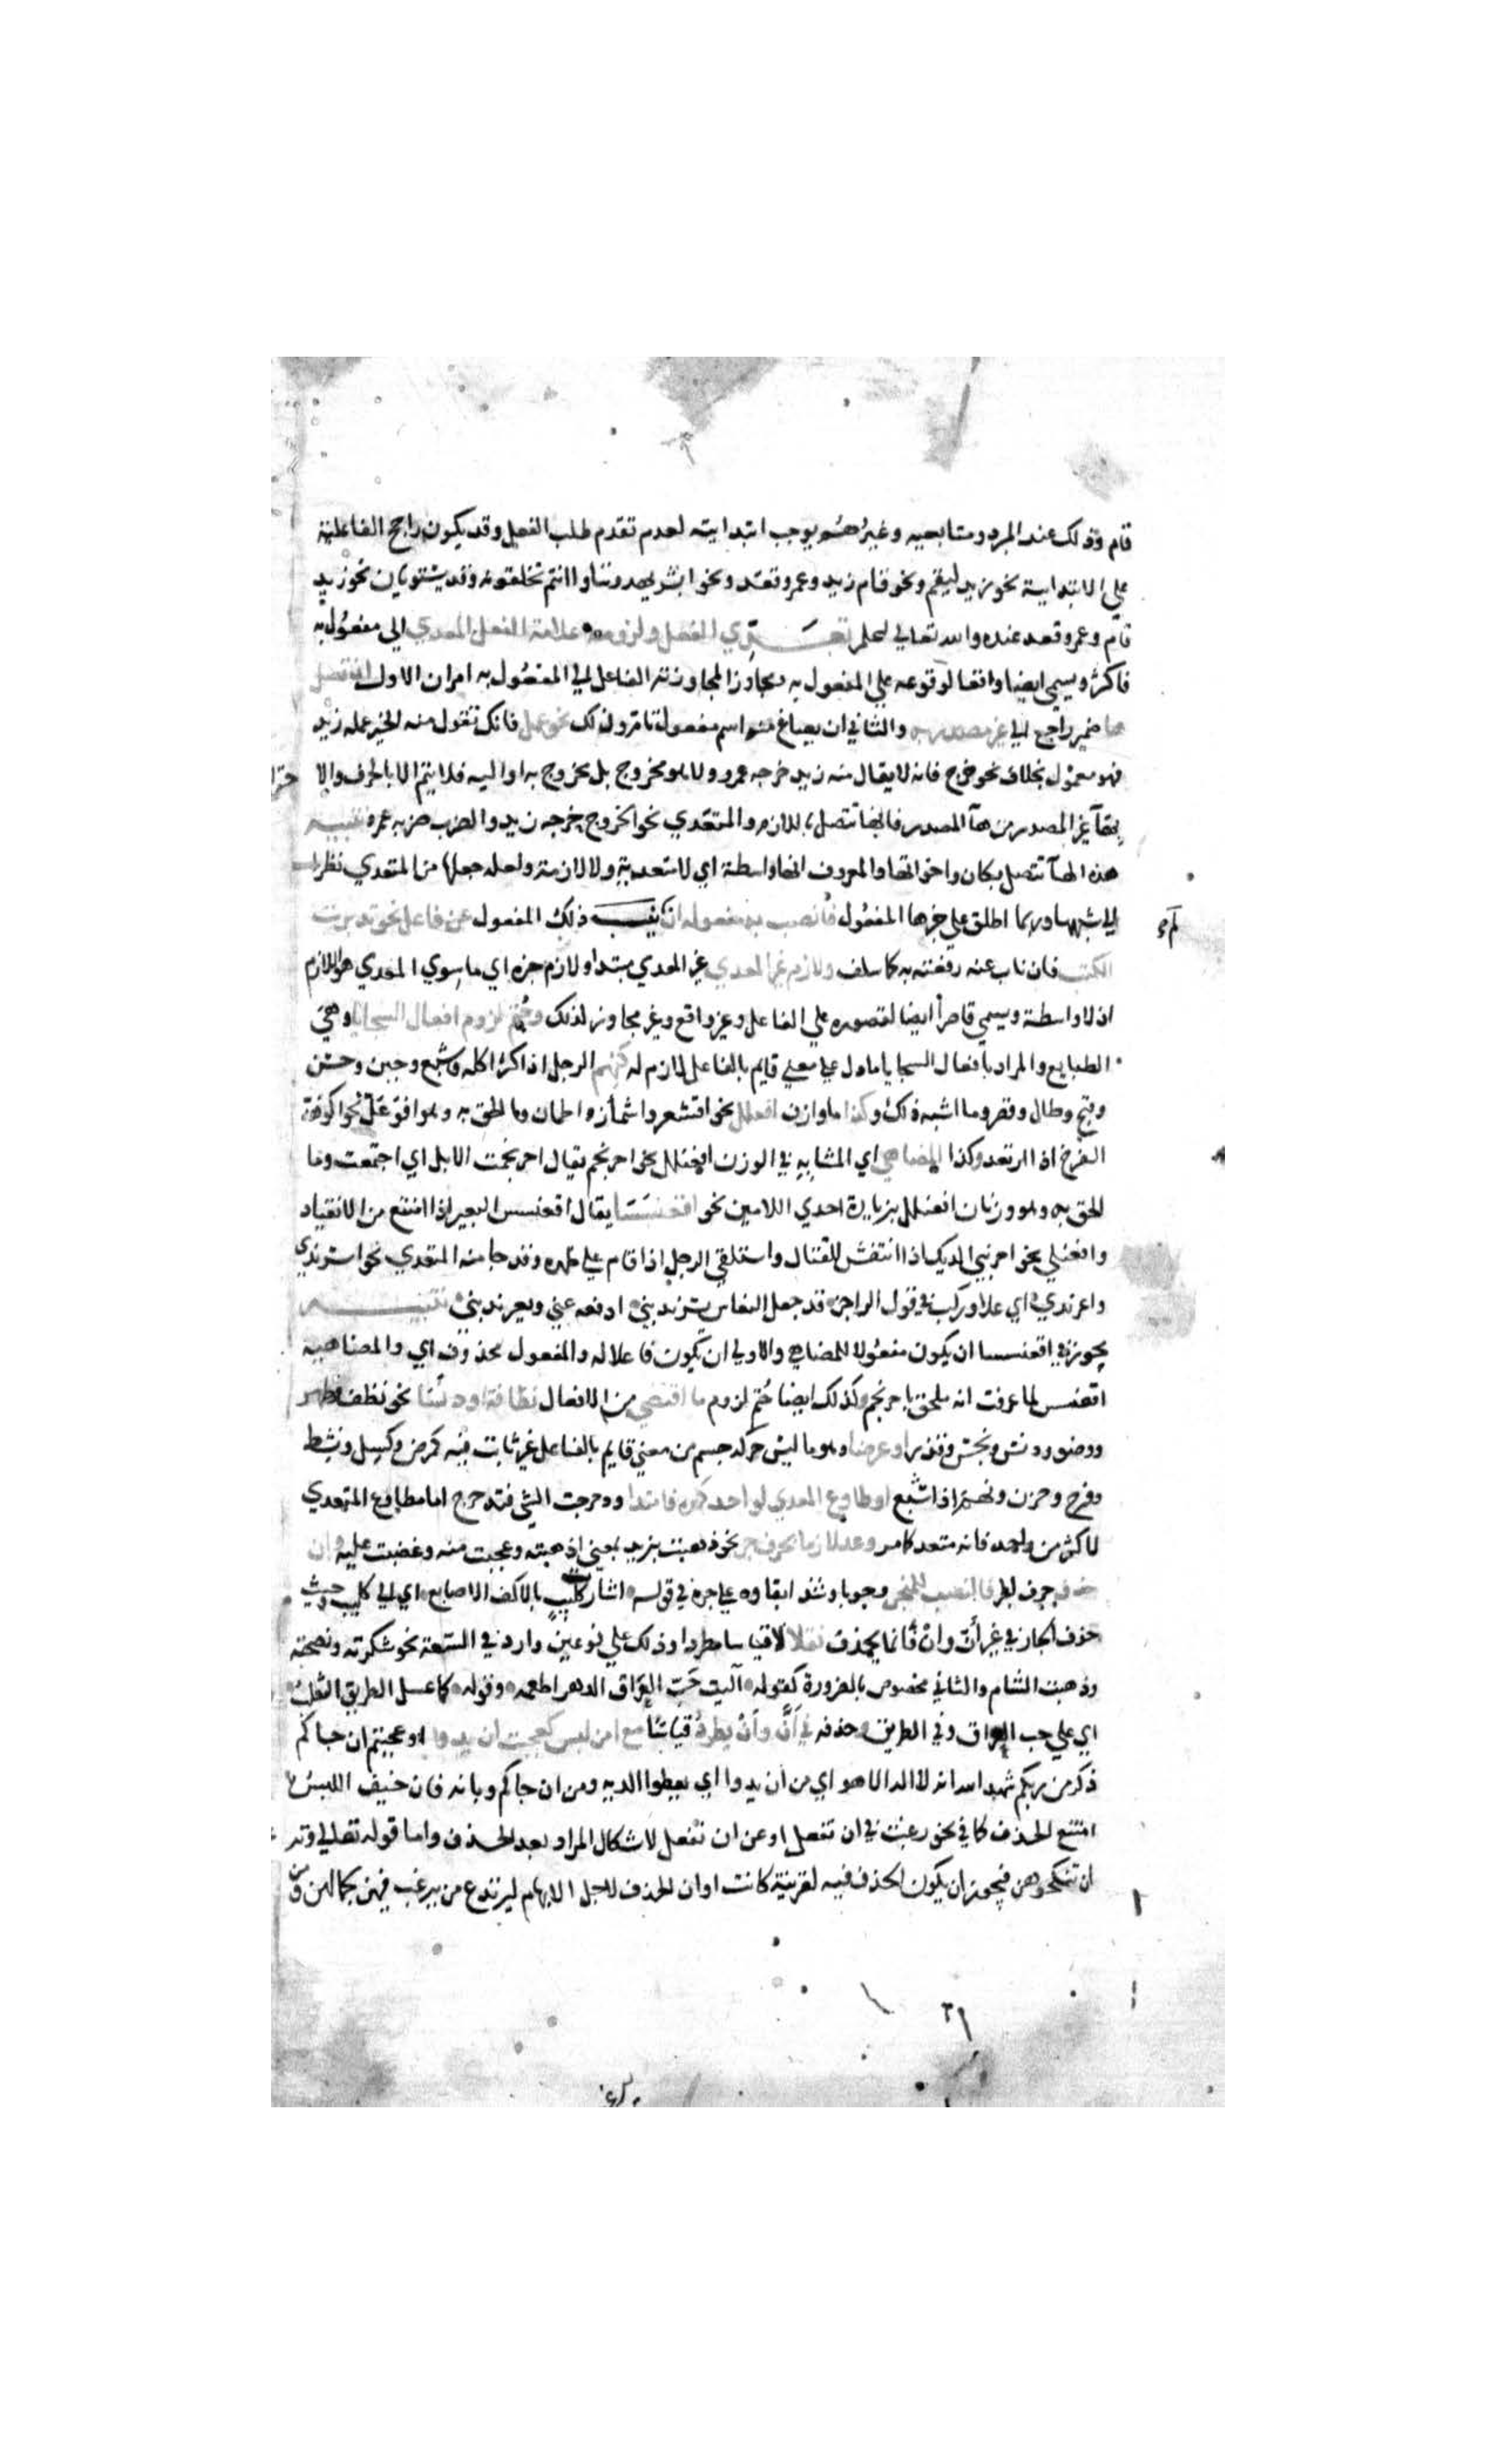 قام وذلك عند المبرد ومتابعيه وغيرهم يوجب ابتدايته لعدم تقدم طلب الفعل وقد يكون راجح الفاعلية
علي الابتداية نحو زيد ليقم ونحو قام زيد وعمرو قعد ونحو ابشر يهدوننا واانتم تخلقونه وقد يستويان نحو زيد
قام وعمرو قعد عنده والله تعالي اعلم تعدي الفعل ولزومه علامة الفعل المعدي الى مفعول به
فاكثر ويسمي ايضا واقعا لوقوعه علي المفعول به ومجاوزا لمجاوزته الفاعل الي المفعول به امران الاول ان تصل
ها ضمير راجع الي غير مصدر به والثاني ان يصاغ منه اسم مفعول تام وذلك نحو عمل فانك تقول منه الخير عمله زيد
فهو معمول بخلاف نحو خرج فانه لا يقال منه زيد خرجه عمرو ولا هو مخروج بل مخروج به او اليه فلا يتم الا بالحرف والا
بهآ غير المصدر من هآ المصدر فانها تتصل باللازم والمتعدي نحو الخروج خرجه زيد والضرب ضربه عمرو تنبيه
هذه الهآ تتصل بكان واخواتها والمعروف انها واسطة اي لا متعدية ولا لازمة ولعله جعلها من المتعدي نظرا
الي شبهها وربما اطلق علي خبرها المفعول فانصب به مفعوله ان لم ينب ذلك المفعول عن فاعل نحو تدبرت
الكتب فان ناب عنه رفعته به كما سلف ولازم غير المعدي غير المعدي مبتدا ولازم خبره اي ما سوي المعدي هو اللازم
اذ لا واسطة ويسمي قاصرا ايضا لقصوره علي الفاعل وغير واقع وغير مجاوز لذلك وحتم لزوم افعال السجايا وهي
الطبايع والمراد بافعال السجايا ما دل علي معني قايم بالفاعل لازم له كنهم الرجل اذا كثر اكله وشجع وجبن وحسن
وقبح وطال وقصر وما اشبه ذلك وكذا ما وازن افعلل نحو اقشعر واشمأز واطمان وما الحق به وهو افوعل نحو اكوهد
الفرخ اذا ارتعد وكذا المضاهي اي المشابه في الوزن افعنلل نحو احرنجم يقال احرنجمت الابل اي اجتمعت وما
الحق به وهو وزنان افعنلل بزيادة احدي اللامين نحو اقعنسسا يقال اقعنسس البعير اذا امتنع من الانقياد
وافعنلي نحو احرنبي الديك اذا انتفش للقتال واستلقي الرجل اذا قام علي ظهره وقد جا منه المتعدي نحو اسرندي
واغرندي اي علا وركب في قول الراجز قد جعل النعاس يسرنديني ادفعه عني ويغرنديني تنبيه
يجوز في اقعنسسا ان يكون مفعولا للمضاهي والاولي ان يكون فاعلا له والمفعول محذوف اي والمضاهيه
اقعنسس لما عرفت انه ملحق باحرنجم وكذلك ايضا حتم لزوم ما اقتضي من الافعال نظافة او دنسا نحو نظف وطهر
ووضؤ ودنس ونجس وقذر او عرضا وهو ما ليس حركة جسم من معني قايم بالفاعل غير ثابت فيه كمرض وكسل ونشط
وفرح وحزن ونهم اذا شبع او طاوع المعدي لواحد كمده فامتدا ودحرجت الشي فتدحرج اما مطاوع المتعدي
لاكثر من واحد فانه متعد كما مر وعد لازما بحرف جر نحو ذهبت بزيد بمعني اذهبته وعجبت منه وغضبت عليه وان
حذف حرف الجر فالنصب للمنجر وجوبا وشذ ابقاوه علي جره في قوله اشارت كليب بالاكف الاصابع اي الي كليب وحيث
حذف الجار في غير أنّ وأنْ فانما يحذف نقلا لا قياسا مطردا وذلك علي نوعين وارد في السعة نحو شكرته ونصحته
وذهبت الشام والثاني مخصوص بالضرورة كقوله آليت حَبّ العراق الدهر اطعمه وقوله كما عسل الطريق الثعلب
اي علي حب العراق وفي الطريق وحذفه في أنّ وأنْ يطرد قياسا مع امن لبس كعجبت ان يدوا او عجبتم ان جاكم
ذكر من ربكم شهد الله انه لا اله الا هو اي من أن يدوا اي يعطوا الدية ومن ان جاكم وبانه فان خيف اللبس
امتنع الحذف كما في نحو رغبت في ان تفعل او عن ان تفعل لاشكال المراد بعد الحذف واما قوله تعالي وترغبون
ان تنكحوهن فيجوز ان يكون الحذف فيه لقرينة كانت او ان الحذف لاجل الابهام ليرتدع من يرغب فيهن لجمالهن ومن